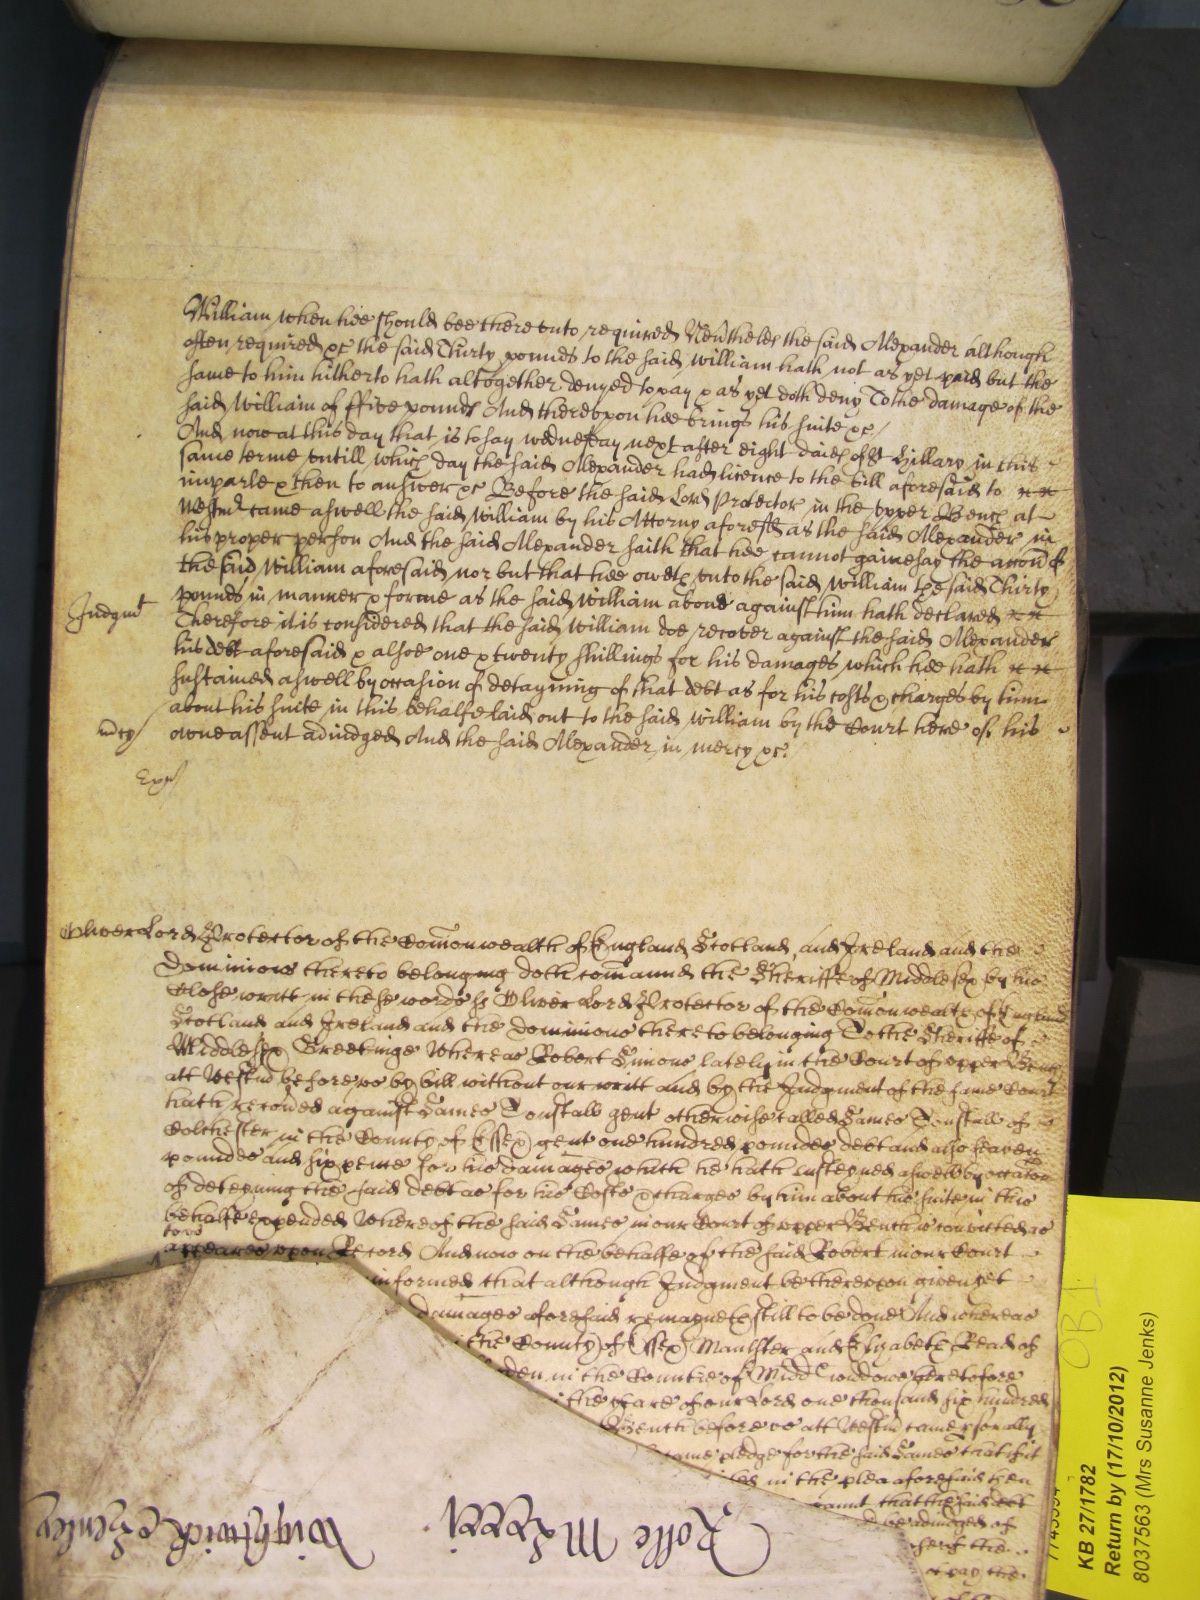 William when hee should bee there unto required Nev~theless the said Alexander although
often required &c the said Thirty pounds to the said William hath not as yet paid but the
same to him hitherto hath altogether denyed to pay & as yet doth deny To the damage of the
said William of ffive pounds And thereupon hee brings his suite &c/
And now at this day that is to say wednesday next after eight daies of St Hillary in this
same terme untill which day the said Alexander had licence to the bill aforesaid to
imparle & then to answer &c Before the said Lord Protector in the upper Bench at
Westm~ came aswell the said William by his Attorny aforesd as the said Alexander in
his proper person And the said Alexander saith that hee cannot gainesay the accon of
the said William aforesaid nor but that hee oweth unto the said William the said Thirty
pounds in manner & forme as the said William above against him hath declared
Judgmt
Therefore it is considered that the said William doe recover against the said Alexander
his debt aforesaid & alsoe one & twenty shillings for his damages which hee hath
sustained aswell by occasion of detayning of that debt as for his costs & charges by him
about his suite in this behalfe laid out to the said William by the Court here of his
mcy
owne assent adiudged And the said Alexander in mercy &c
Oliver Lord Protector of the Com~onwealth of England Scotland and Ireland and the
Dominions thereto belonging doth com~annd the Sheriffe of Middlesex by his
Close writt in these words ss Oliver Lord Protector of the Com~onwealth of England
Scotland and Ireland and the dominions thereto belonging To the Sheriffe of
Middlesex Greetinge Whereas Robert Simons lately in the Court of upper Bench
att Westm~ before us by bill without our writt and by the Judgment of the same Court
hath recoved against James Tonstall gent otherwise called James Tonstall of
Colchester in the County of Essex gent one hundred poundes debt and also seaven
poundes and six pence for his damages which he hath susteyned aswell by occation
of deteyning the said debt as for his Costs & charges by him about his suite in this
behalfe expended Whereof the said James in our Court of upper Bench is convicted as
to us
appeares upon Record And now on the behalfe of the said Robert in our Court
informed that although Judgment be thereupon given yet
damages aforesaid remayneth still to be done And whereas
the County of Essex and Elizabeth Read of
in the Countie of Midd widdowe heretofore
the yeare of our Lord one thousand six hundred
Bench before us att Westm~ came p~sonally
came pledge for the said James that if it
in the plea aforesaid then
that the said debt
be adiudged of
the
pay the
Rolle M
Wightwick & Henley
KB 27/1782
Return by (17/10/2012)
8037563 (Mrs Susanne Jenks)